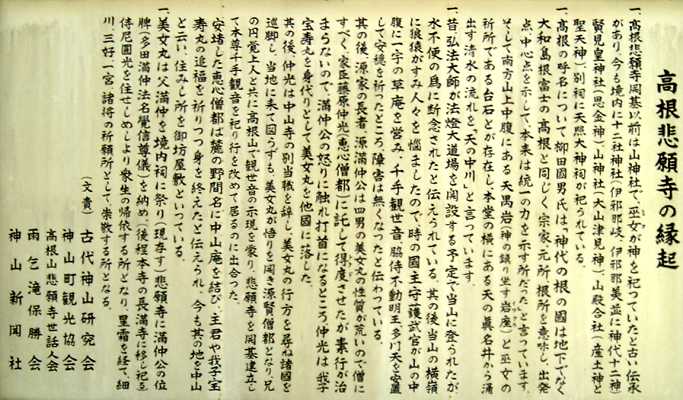 高根悲願寺の縁起
一、高根悲願寺開基以前は山神社で、巫女が神を祀っていたと古い伝承
があり、今も境内に十二社神社(伊邪那岐、伊邪那美並に神代十二神)
賢見皇神社(思金神)、山神社(大山津見神)、山殿合社(産土神と
聖天神)、別祠に天照大神祠が祀られている。
一、高根の呼名について柳田國男氏は、「神代の根の國は地下でなく
大和島根富士の高根と同じく宗家、元所、根所を意味し、出発
点、中心点を示して、本来は統一の力を示す所だった」と言っています。
そして南方山上中腹にある天禺岩(神の鎮り坐す岩座)と巫女の
祈所である台石との存在し、本堂の横にある天の真名井から涌
出す清水の流れを「天の中川」と言っています。
一、昔弘法大師が法燈大道場を開設する予定で当山に登られたが、
水不便の為に断念されたと伝えられている。其の後当山の横嶺
に狼猿がすみ人々を悩ましたので時の國主守護武官が山の中
腹に一宇の草庵を営み、千手観世音、脇侍不動明王多門天を安置
して安穏を祈ったところ、障害は無くなったと伝わっている。
其の後源家の長者、源満仲公は四男の美女丸の性質が荒いので僧に
すべく、家臣藤原仲光(恵心僧都)に託して得度させたが素行が治
まらないので、満仲公の怒りに触れ打首になるところ仲光は我子
宝寿丸を身代りとして美女丸を他國に落した。
其の後仲光は中山寺の別当職を辞し、美女丸の行方を尋ね諸國を
巡脚し、当地に来て図うずも、美女丸が悟りを開き源賢僧都となり、兄
の円覚上人と共に高根山で観世音の示現を蒙り、悲願寺を開基建立し
て本尊千手観音を祀り行を改めて居るのに出合った。
安堵した恵心僧都は麓の野間名に中山庵を結び、主君や我子宝
寿丸の追福を祈りつつ身を終えたと伝えられ、今も其の地を中山
と云い、住みし所を御坊屋敷といっている。
一、美女丸は父満仲を境内祠に祭り(現存す)悲願寺に満仲公の位
牌(多田満仲法名覺信尊儀)を納め(後程本寺の長満寺に移し祀る)
侍尼圓光を住せしめしより衆生の帰依する所となり、星霜を経て、細
川三好一宮諸将の祈願所として、崇敬する所となる。
(文責)古代神山研究会
神山町観光協会
高根山悲願寺世話人会
雨乞滝保勝会
神山新聞社